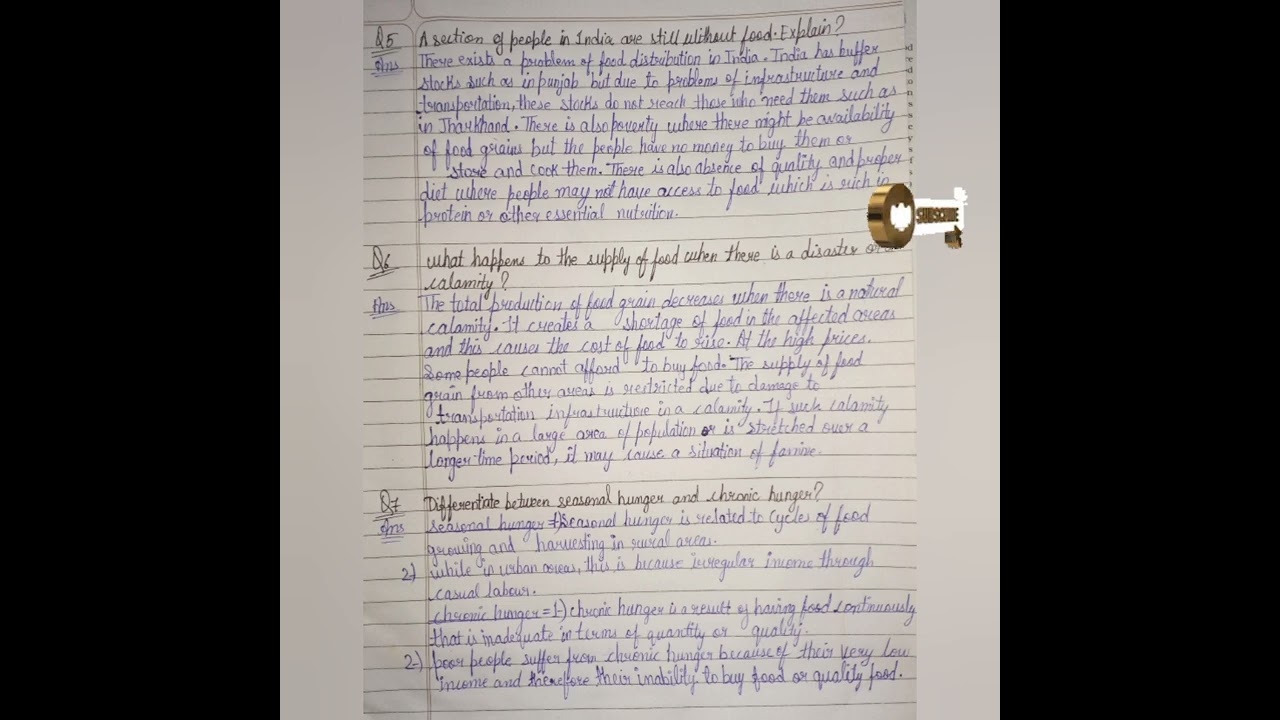 Q5 A section of people in India are still without food. Explain?
Ans There exists a problem of food distribution in India. India has buffer
stocks such as in punjab but due to problems of infrastructure and
transportation, these stocks do not reach those who need them such as
in Jharkhand. There is also poverty where there might be availability
of food grains but the people have no money to buy them or
store and cook them. There is also absence of quality and proper
diet where people may not have access to food which is rich in
protein or other essential nutrition.
SUBSCRIBE
Q6 what happens to the supply of food when there is a disaster or
calamity?
Ans The total production of food grain decreases when there is a natural
calamity. It creates a shortage of food in the affected areas
and this causes the cost of food to rise. At the high prices,
Some people cannot afford to buy food. The supply of food
grain from other areas is restricted due to damage to
transportation infrastructure in a calamity. If such calamity
happens in a large area of population or is stretched over a
longer time period, it may cause a situation of famine.
Q7 Differentiate between seasonal hunger and chronic hunger?
Ans Seasonal hunger = 1) Seasonal hunger is related to cycles of food
growing and harvesting in rural areas.
2) while in urban areas, this is because irregular income through
casual labour.
chronic hunger = 1-) chronic hunger is a result of having food continuously
that is inadequate in terms of quantity or quality.
2-) poor people suffer from chronic hunger because of their very low
income and therefore their inability to buy food or quality food.